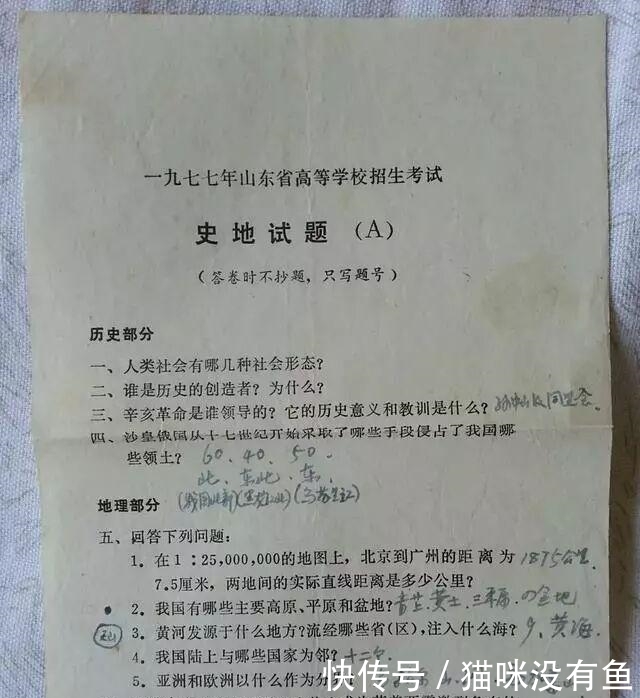 一九七七年山东省高等学校招生考试
史地试题（A）
（答卷时不抄题，只写题号）
历史部分
一、人类社会有哪几种社会形态？
二、谁是历史的创造者？为什么？
三、辛亥革命是谁领导的？它的历史意义和教训是什么？
四、沙皇俄国从十七世纪开始采取了哪些手段侵占了我国哪
些领土？ 60、40、50、
此、东北、东、
地理部分
五、回答下列问题：
1．在1：25,000,000的地图上，北京到广州的距离为 1875公里
7.5厘米，两地间的实际直线距离是多少公里？
2．我国有哪些主要高原、平原和盆地？
3．黄河发源于什么地方？流经哪些省（区），注入什么海？ 9、黄海
4．我国陆上与哪些国家为邻？ 十二个
5．亚洲和欧洲以什么作为分
快传号／猫咪没有鱼